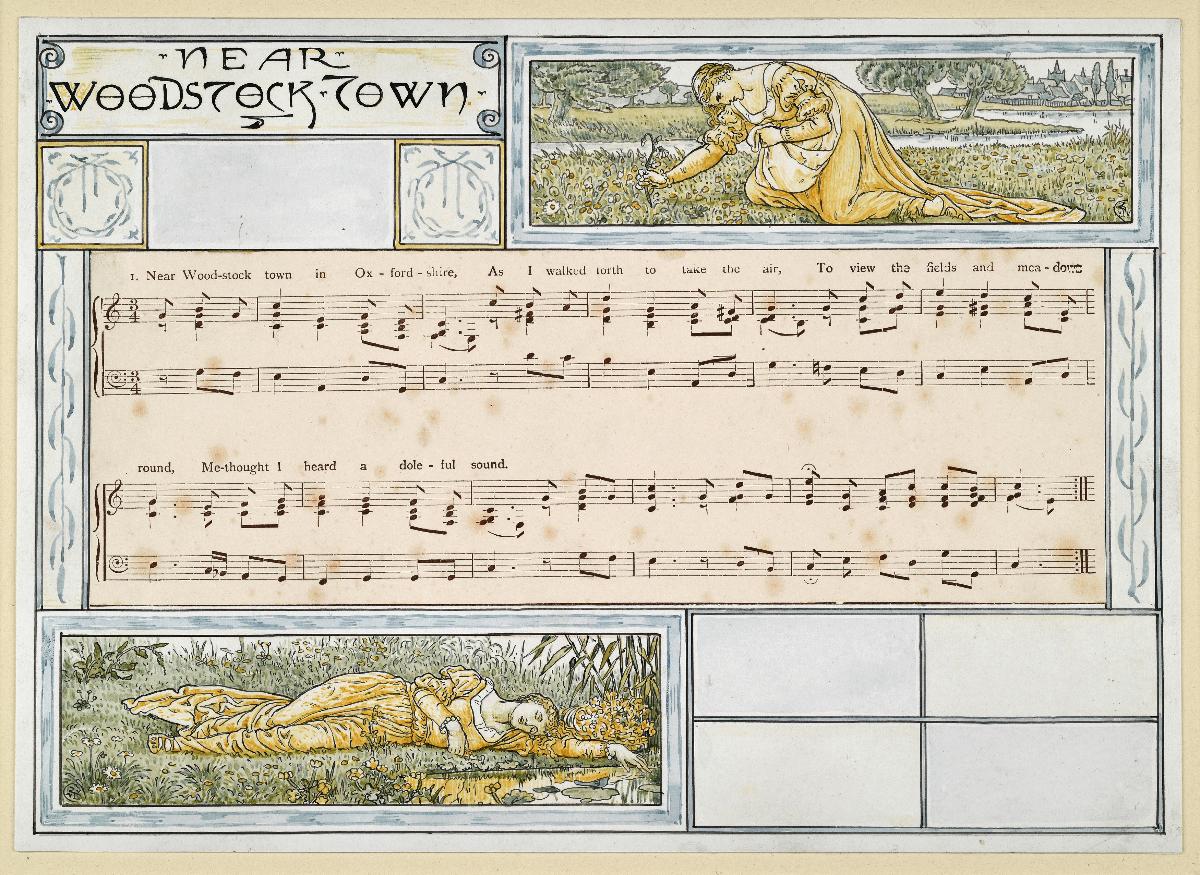 NEAR
WOODSTOCK TOWN
1. Near Wood-stock town in Ox - ford - shire, As I walked forth to take the air, To view the fields and mea - dows
round, Me-thought I heard a dole - ful sound.